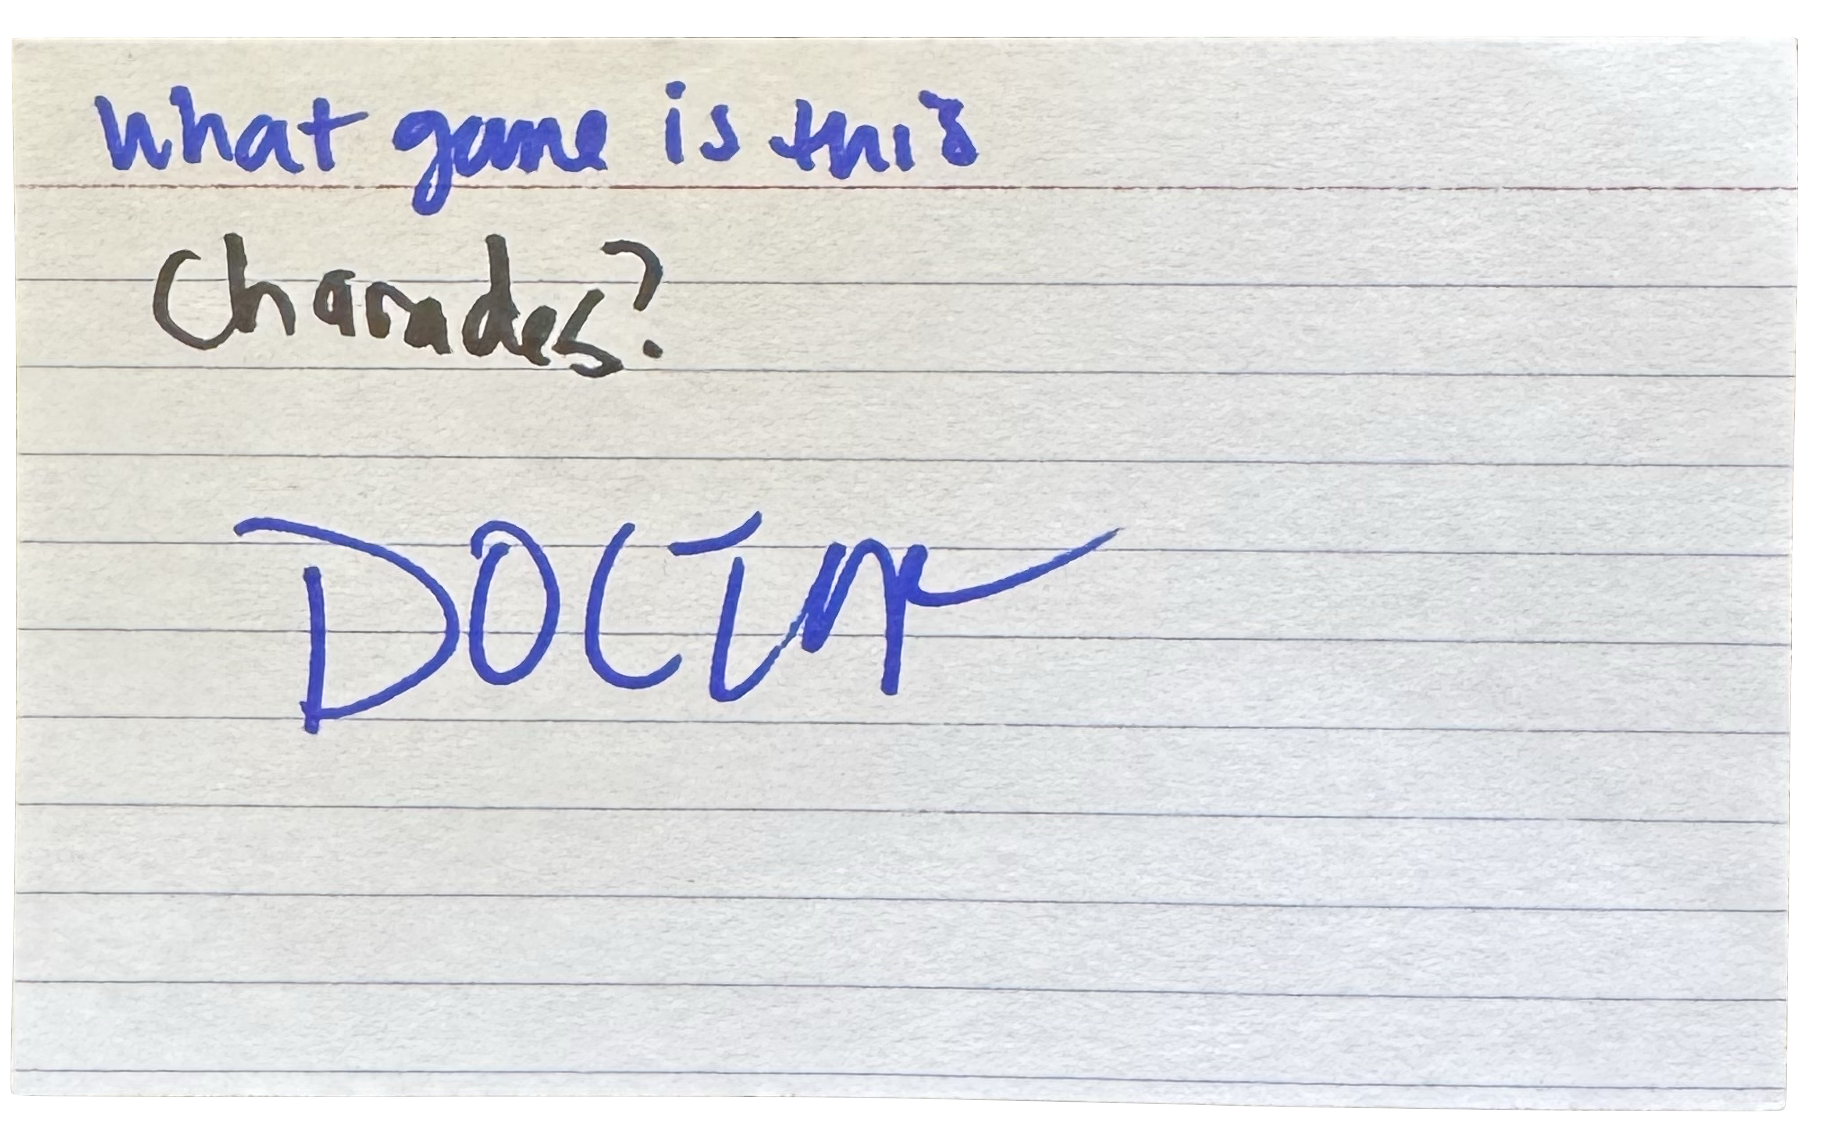 what game is this
Charades?
DOCTOR